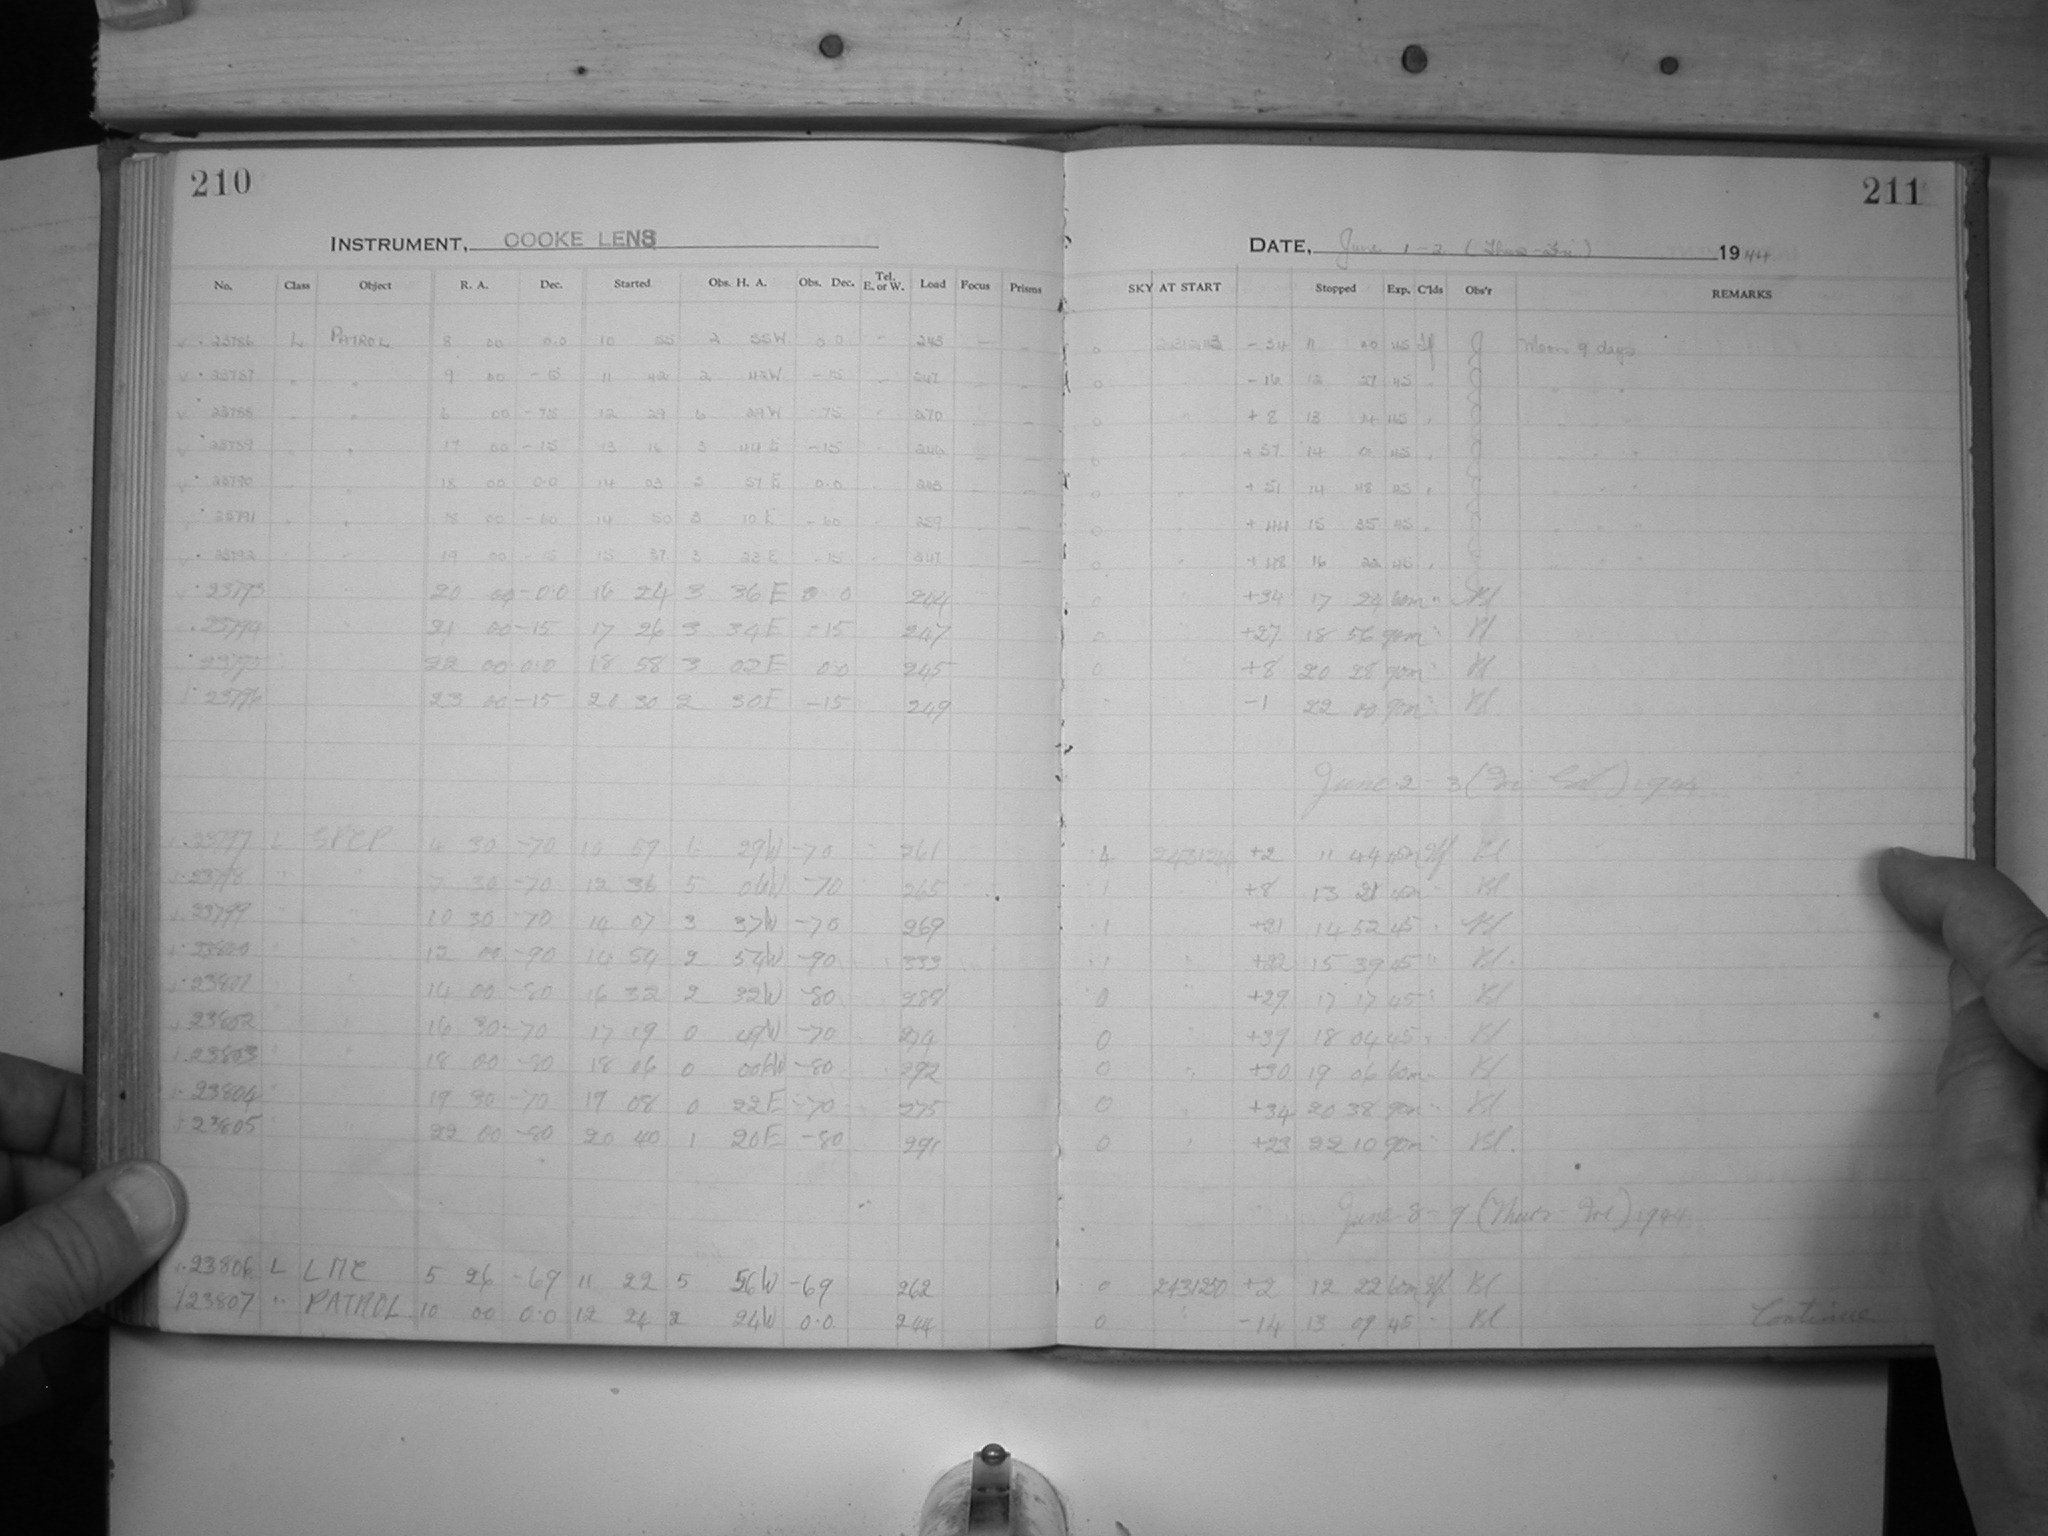 210
211
INSTRUMENT, COOKE LENS
DATE, June 1-2 (Thur-Fri) 1944
No. Class Object R. A. Dec. Started Obs. H. A. Obs. Dec. Tel. E. or W. Load Focus Prisms SKY AT START Stopped Exp. C'lds Obs'r REMARKS
23786 L PATROL 8 00 0.0 10 55 2 55W 0.0 - 243 - - 0 -34 11 40 45 J Moon 9 days
23787 " " 9 00 -15 11 42 2 42W -15 - 247 - - 0 " -16 12 27 45 "
23788 " " 6 00 -75 12 29 6 29W -75 - 270 - - 0 " +8 13 14 45 "
23789 " " 17 00 -15 13 16 3 44E -15 246 - - 0 " +57 14 01 45 "
23790 " " 18 00 0.0 14 03 3 57E 0.0 243 - - 0 " +51 14 48 45 "
23791 " " 18 00 -60 14 50 3 10E -60 259 - - 0 " +44 15 35 45 "
23792 " " 19 00 -15 15 37 3 23E -15 - 247 - 0 " +48 16 22 45 "
23793 " 20 00 -0.0 16 24 3 36E 0.0 244 0 " +34 17 24 60m " Bl
23794 " 21 00 -15 17 26 3 34E -15 247 0 " +27 18 56 90m " Bl
23795 22 00 0.0 18 58 3 02E 0.0 245 0 +8 20 28 90m " Bl
23796 23 00 -15 20 30 2 30E -15 249 - -1 22 00 90m " Bl
June 2-3 (Fri-Sat) 1944
23797 L SPCP 4 30 -70 10 59 6 29W -70 261 1 2431244 +2 11 44 45m Bl
23798 " " 7 30 -70 12 36 5 06W -70 265 1 " +8 13 21 45m Bl
23799 " " 10 30 -70 14 07 3 37W -70 269 1 +21 14 52 45 " Bl
23800 " 12 00 -90 14 54 2 54W -90 333 1 " +22 15 39 45 " Bl
23801 " 14 00 -80 16 32 2 32W -80 288 0 " +29 17 17 45 " Bl
23802 " 16 30 -70 17 19 0 49W -70 274 0 +39 18 04 45 " Bl
23803 " " 18 00 -80 18 06 0 06W -80 292 0 " +30 19 06 60m " Bl
23804 " 19 30 -70 19 08 0 22E -70 275 0 " +34 20 38 90m " Bl
23805 " 22 00 -80 20 40 1 20E -80 291 0 " +23 22 10 90m " Bl.
June 8-9 (Thurs-Fri) 1944
23806 L LMC 5 26 -69 11 22 5 56W -69 262 0 2431250 +2 12 22 60m Bl
23807 " PATROL 10 00 0.0 12 24 2 24W 0.0 244 0 " -14 13 09 45 " Bl Continue